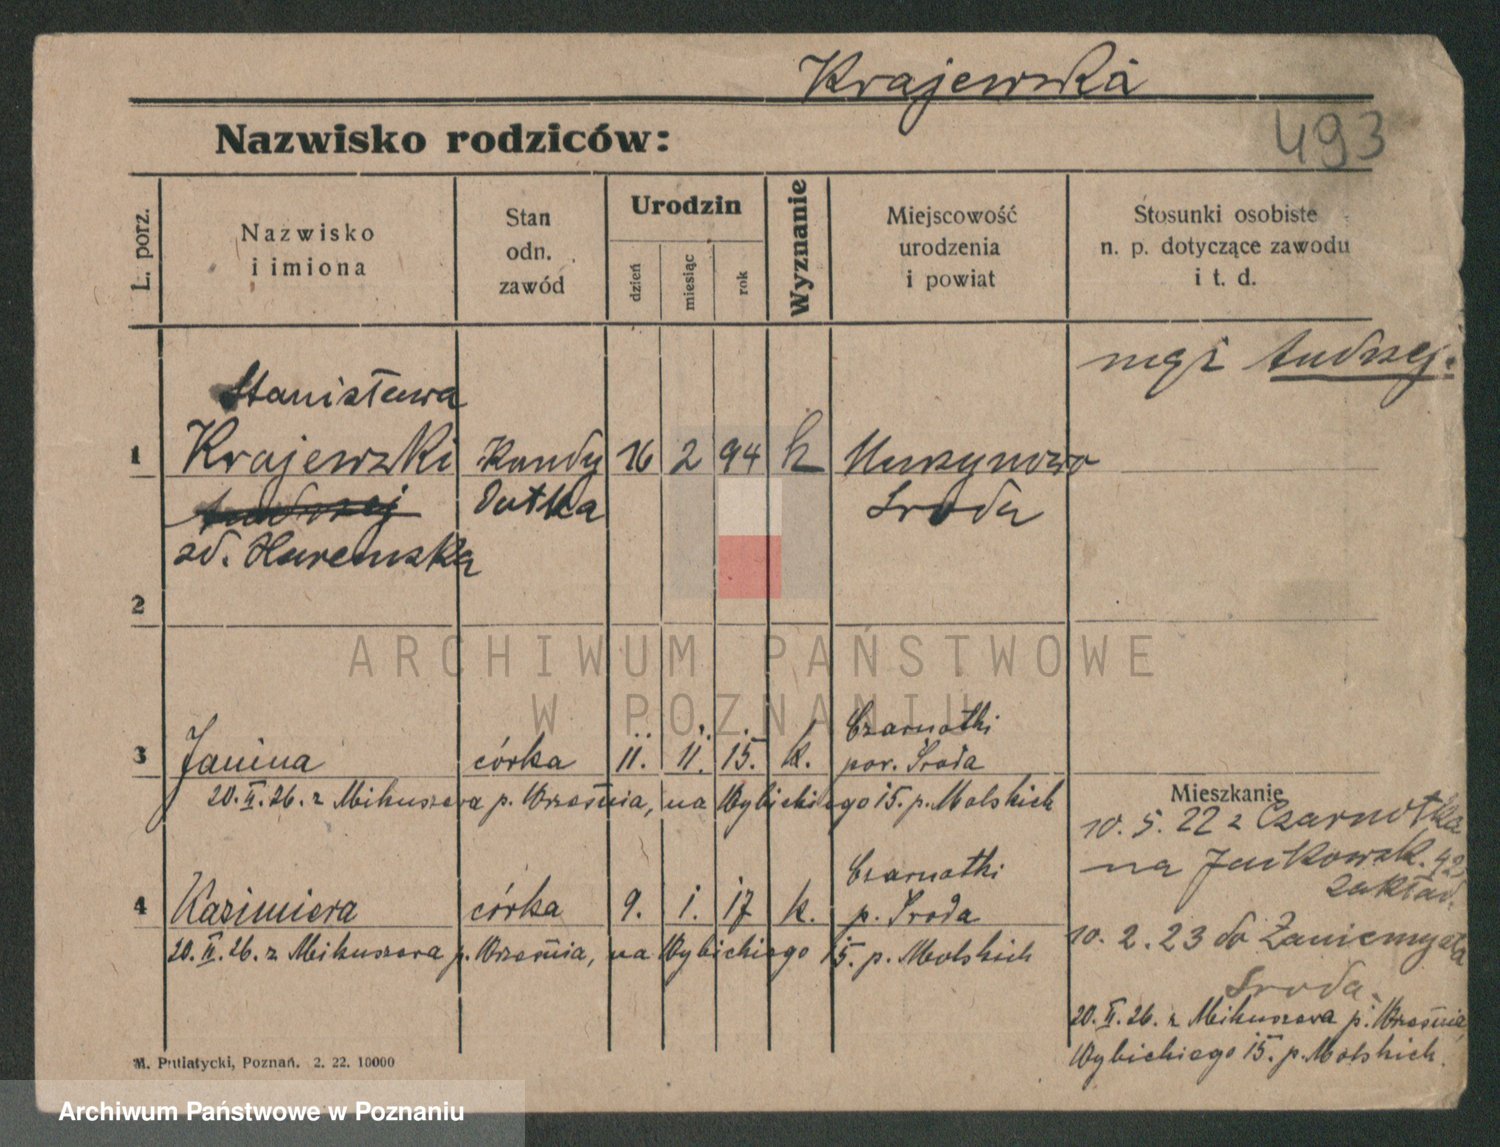 Krajewska
Nazwisko rodziców:
493
L. porz.
Nazwisko
i imiona
Stan
odn.
zawód
Urodzin
dzień
miesiąc
rok
Wyznanie
Miejscowość
urodzenia
i powiat
Stosunki osobiste
n. p. dotyczące zawodu
i t. d.
mąż Andrzej.
Stanisława
1 Krajewski Kandy 16 2 94 k Murzynowo
Andrzej datka Sroda
zd. Haremska
2
ARCHIWUM PAŃSTWOWE
W POZNANIU
Czarnotki
3 Janina córka 11. 11. 15. k. pow. Środa
20. II. 26. z Mikuszewa p. Września, na Wybickiego 15. p. Molskich
Mieszkanie
10. 5. 22 z Czarnotka
na Jackowsk. 42
zakład.
Czarnotki
4 Kazimiera córka 9. 1. 17 k. p. Środa
20. II. 26. z Mikuszewa p. Września, na Wybickiego 15. p. Molskich
10. 2. 23 do Zaniemyśla
Sroda.
20. II. 26. z Mikuszewa p. Września
Wybickiego 15. p. Molskich.
M. Putiatycki, Poznań. 2. 22. 10000
Archiwum Państwowe w Poznaniu